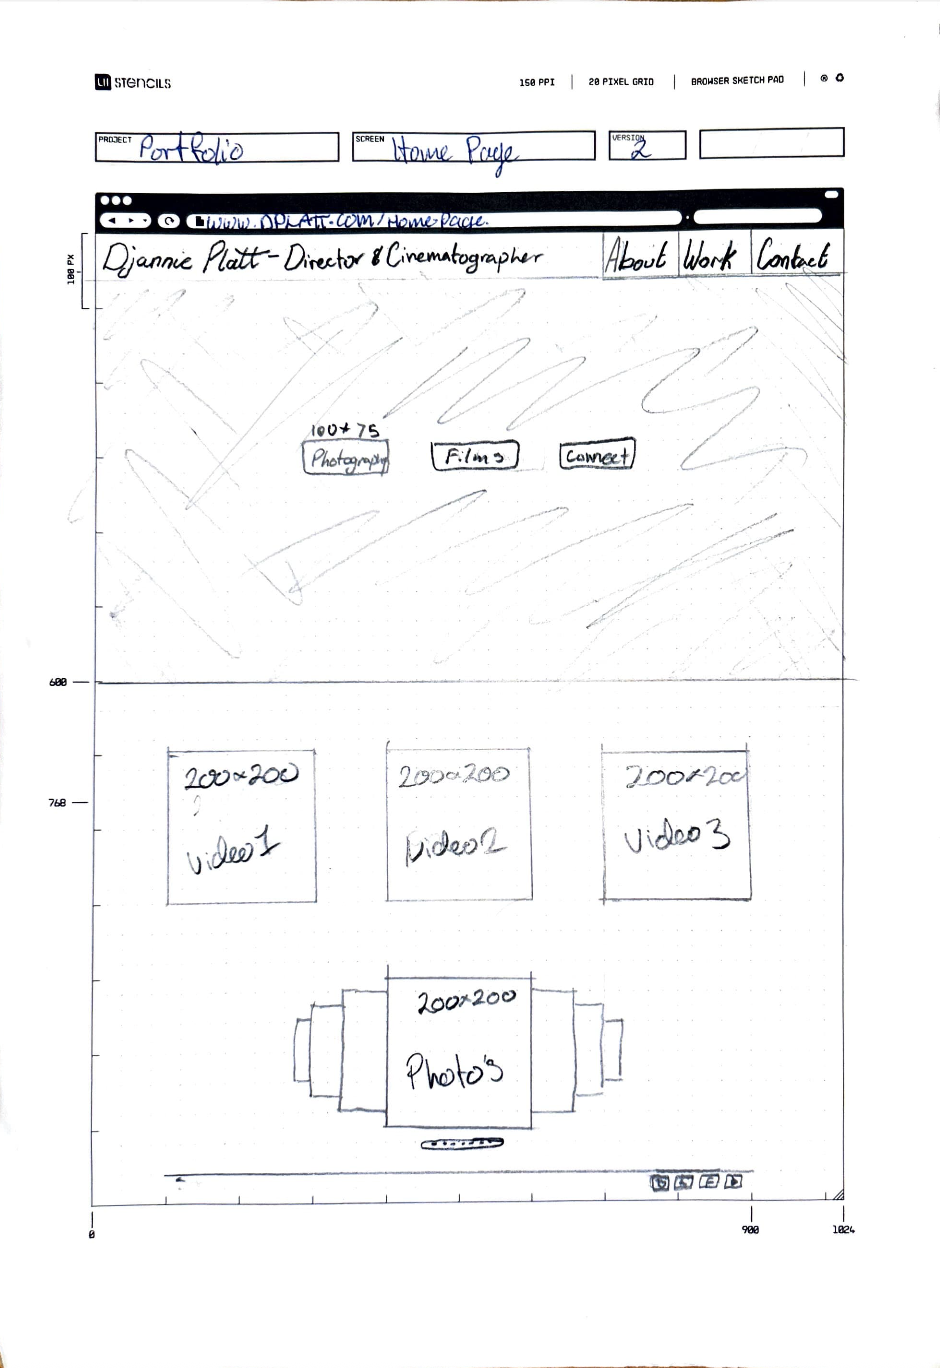 UI STENCILS
150 PPI | 20 PIXEL GRID | BROWSER SKETCH PAD
PROJECT Portfolio
SCREEN Home Page
VERSION 2
www.DPLATT.com/HomePage.
100 PX
Djannie Platt - Director & Cinematographer
About Work Contact
100*75
Photography Films Connect
600
200x200 200x200 200x200
768
video1 Video2 Video3
200x200
Photo's
0 900 1024